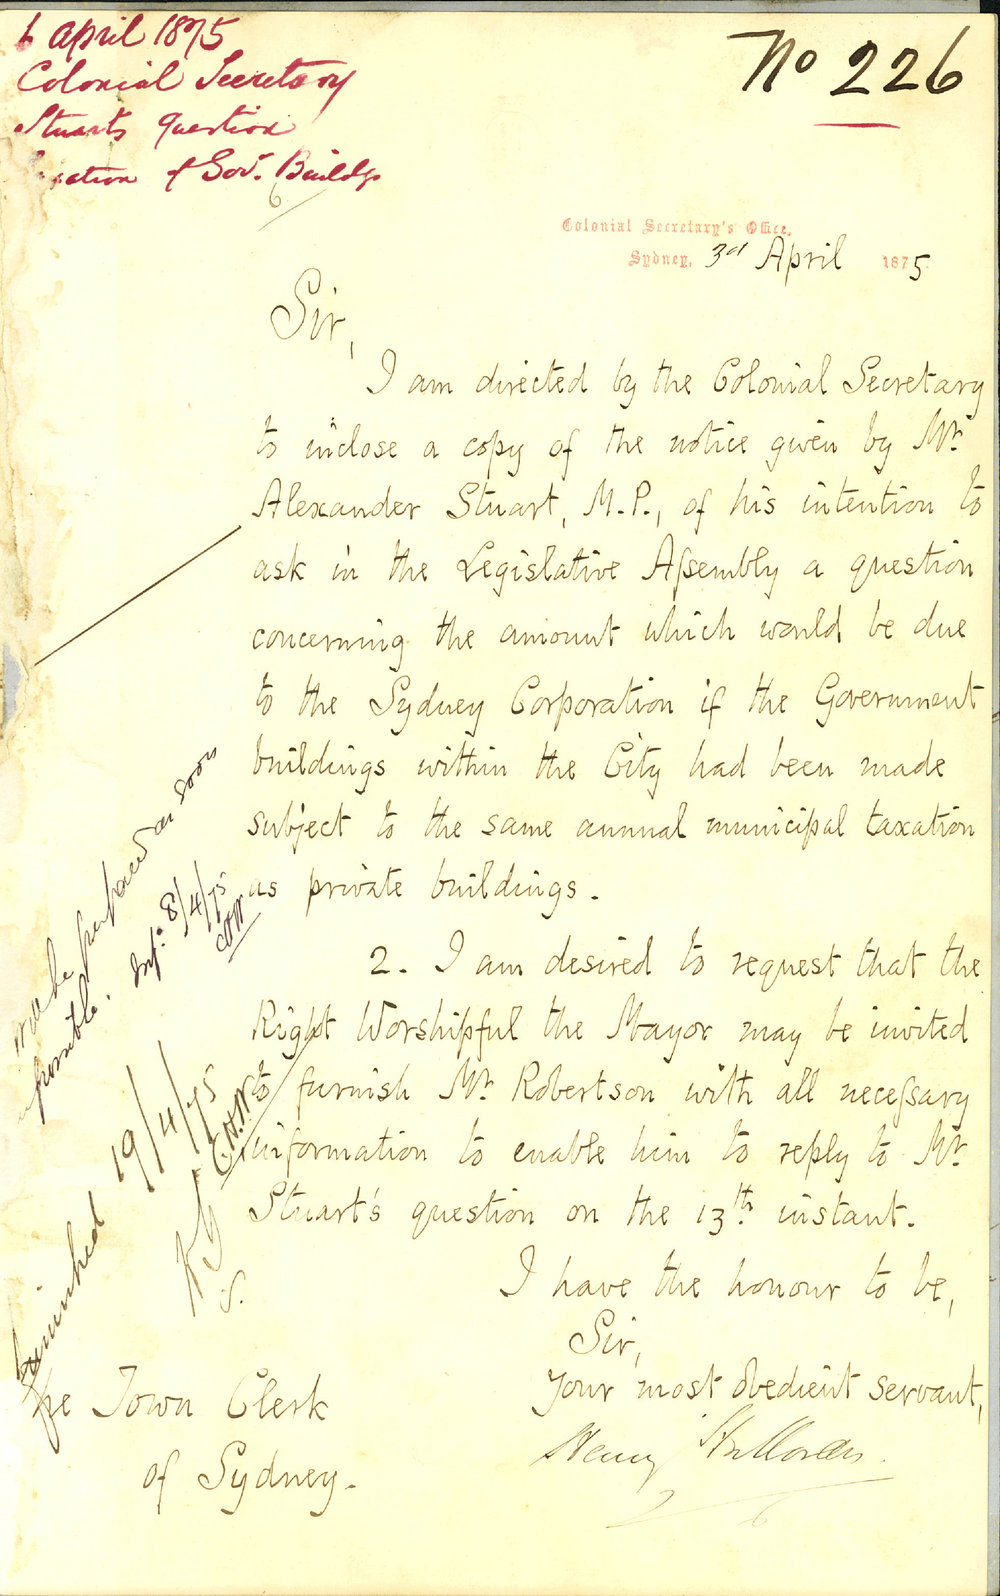 6 April 1875
Colonial Secretary
Stuarts question
of Govt. Buildgs
No 226
Colonial Secretary's Office,
Sydney, 3rd April 1875
Sir,
I am directed by the Colonial Secretary
to inclose a copy of the notice given by Mr
Alexander Stuart, M.P., of his intention to
ask in the Legislative Aſsembly a question
concerning the amount which would be due
to the Sydney Corporation if the Government
buildings within the City had been made
subject to the same annual municipal taxation
as private buildings.
2. I am desired to request that the
Right Worshipful the Mayor may be invited
to furnish Mr Robertson with all neceſsary
information to enable him to reply to Mr
Stuart's question on the 13th instant.
I have the honour to be,
Sir,
Your most obedient servant,
Henry Halloran
The Town Clerk
of Sydney.
will be prepared as soon
as poſsible. Inf. 8/4/75
C.H.W
Furnished 19/4/75
C.H.W